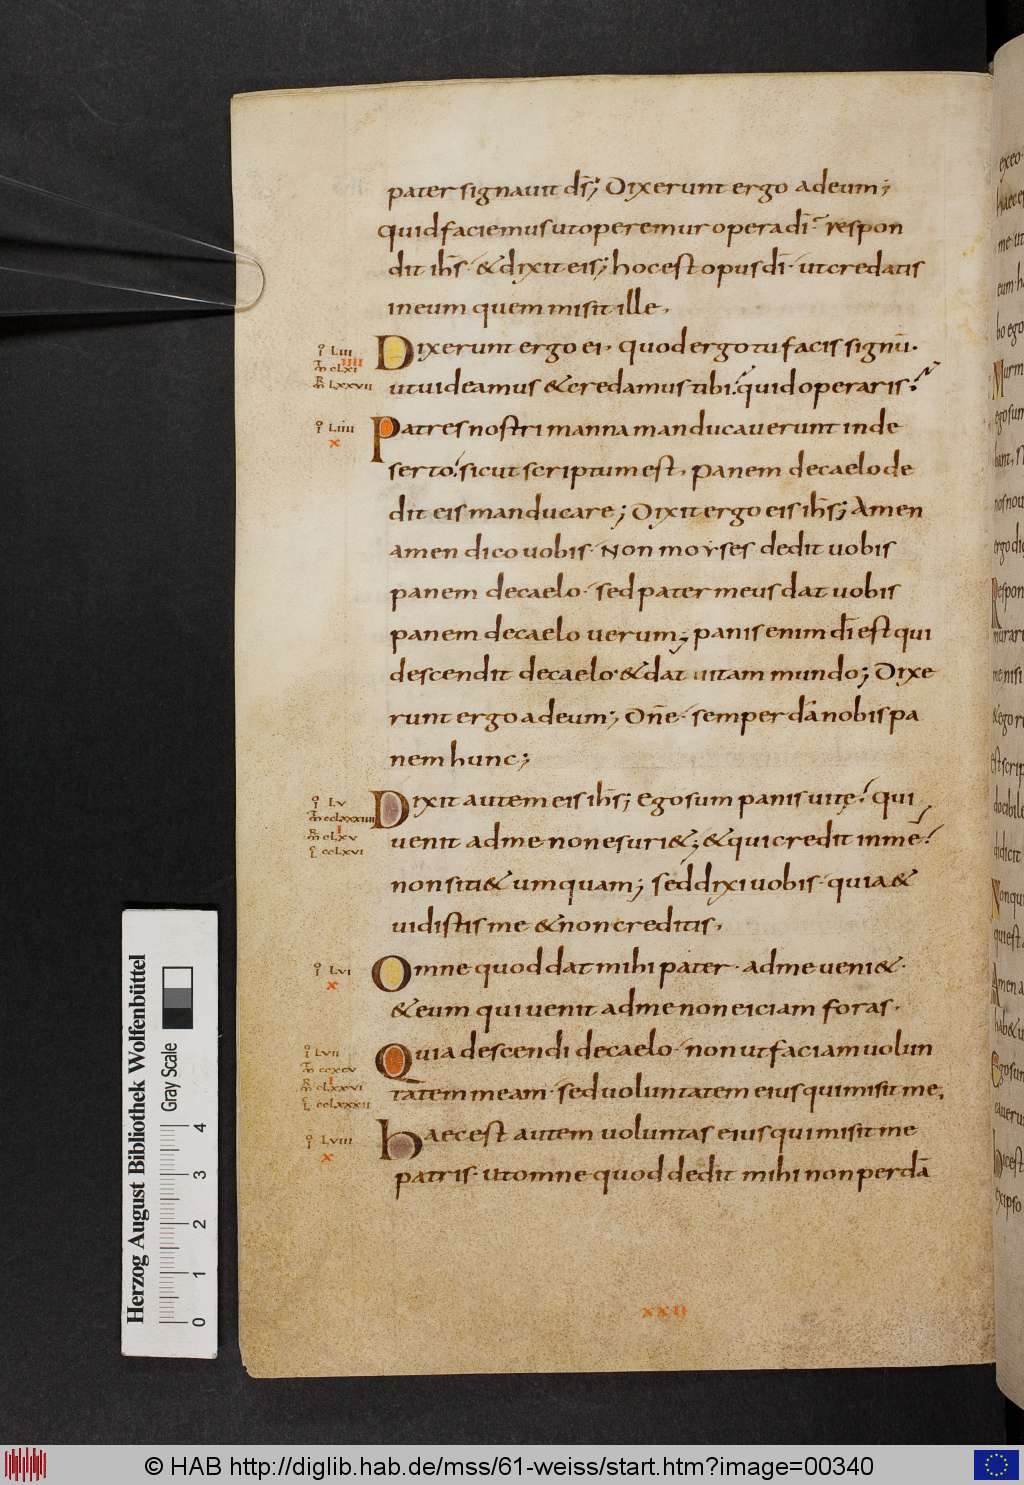 pater signauit ds̄; Dixerunt ergo ad eum;
quid faciemus ut operemur opera dī· respon
dit ih̄s· & dixit eis; hoc est opus dī· ut credatis
in eum quem misit ille·
Dixerunt ergo ei· quod ergo tu facis signū·
ut uideamus & credamus tibi? quid operaris?
Patres nostri manna manducauerunt in de
serto? sicut scriptum est· panem de caelo de
dit eis manducare; Dixit ergo eis ih̄s; Amen
amen dico uobis· Non moyses dedit uobis
panem de caelo· sed pater meus dat uobis
panem de caelo uerum; panis enim dī est qui
descendit de caelo· & dat uitam mundo; Dixe
runt ergo ad eum; Dn̄e· semper da nobis pa
nem hunc;
Dixit autem eis ih̄s; Ego sum panis uitę? qui
uenit ad me non esuri&; & qui credit in me?
non siti& umquam; sed dixi uobis· quia &
uidistis me & non creditis·
Omne quod dat mihi pater· ad me ueni&·
& eum qui uenit ad me non eiciam foras·
Quia descendi de caelo· non ut faciam uolun
tatem meam· sed uoluntatem eius qui misit me·
Haec est autem uoluntas eius qui misit me
patris· Ut omne quod dedit mihi non perdā
LIII
IIII
CLXI
LXXVII
LIIII
X
LV
CCLXXXIIII
I
CLXV
CCLXVI
LVI
X
LVII
CCXCV
I
CLXXVI
CCLXXXII
LVIII
X
XXII
Herzog August Bibliothek Wolfenbüttel
Gray Scale
0 1 2 3 4
© HAB http://diglib.hab.de/mss/61-weiss/start.htm?image=00340